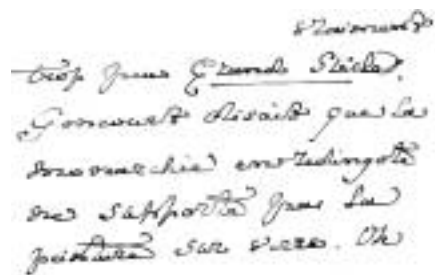 vraiment
trop peu Grand Siècle.
Goncourt disait que la
monarchie en redingote
ne supporte pas la
peinture sur verre. Oh